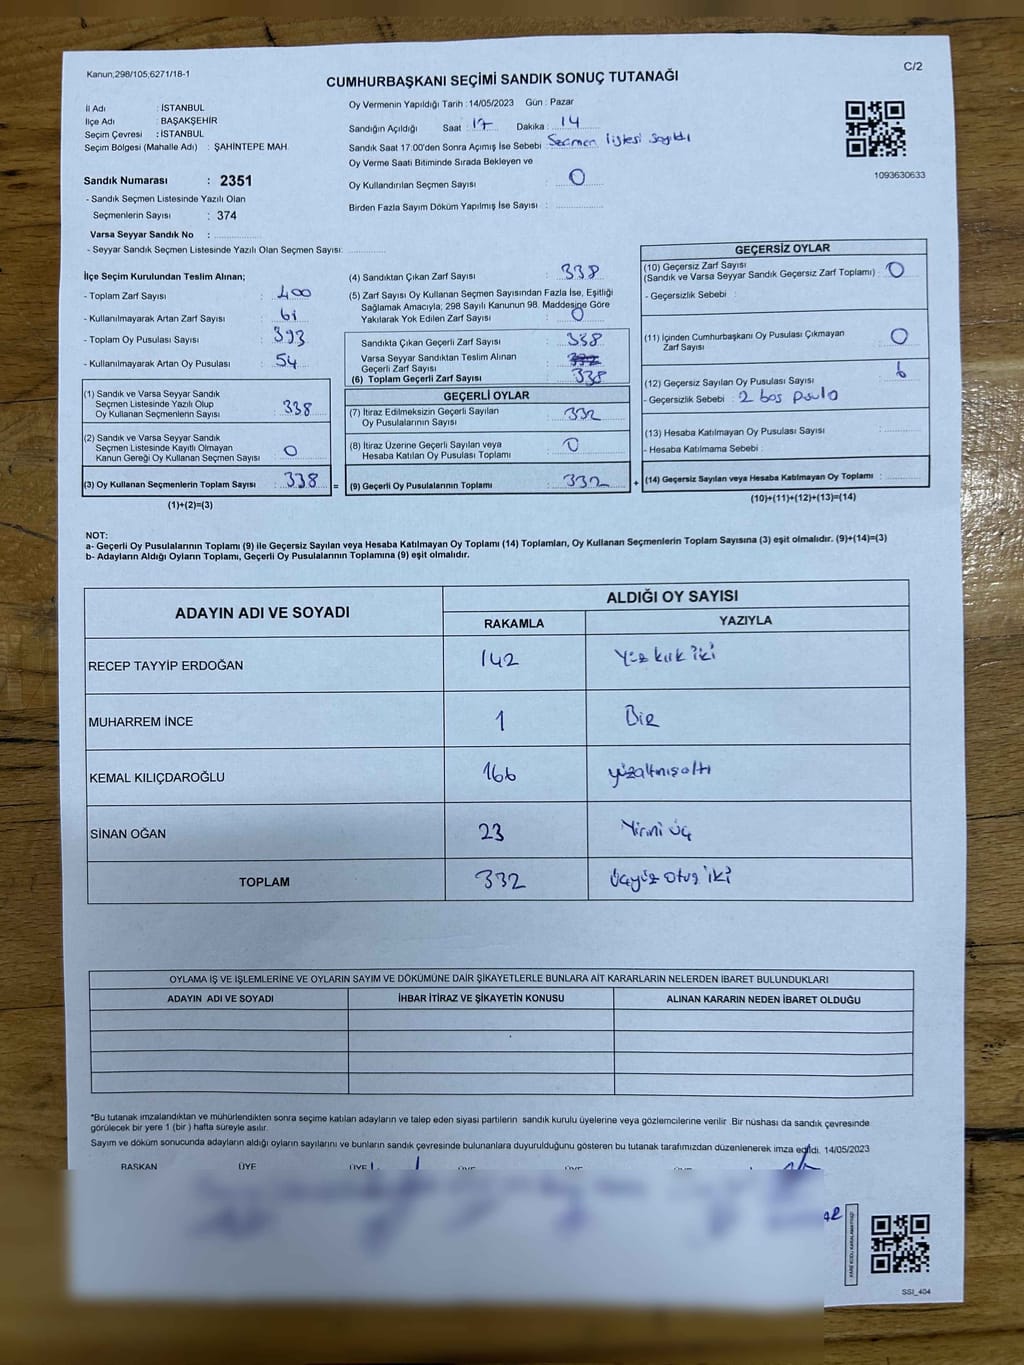 Kanun;298/105;6271/18-1
C/2
CUMHURBAŞKANI SEÇİMİ SANDIK SONUÇ TUTANAĞI
İl Adı : İSTANBUL
İlçe Adı : BAŞAKŞEHİR
Seçim Çevresi : İSTANBUL
Seçim Bölgesi (Mahalle Adı) : ŞAHİNTEPE MAH.
Sandık Numarası : 2351
- Sandık Seçmen Listesinde Yazılı Olan
Seçmenlerin Sayısı : 374
Varsa Seyyar Sandık No :
- Seyyar Sandık Seçmen Listesinde Yazılı Olan Seçmen Sayısı:
Oy Vermenin Yapıldığı Tarih : 14/05/2023 Gün : Pazar
Sandığın Açıldığı Saat : 17 Dakika : 14
Sandık Saat 17.00'den Sonra Açımış İse Sebebi : Seçmen listesi sayıldı
Oy Verme Saati Bitiminde Sırada Bekleyen ve
Oy Kullandırılan Seçmen Sayısı : 0
Birden Fazla Sayım Döküm Yapılmış İse Sayısı :
1093630633
İlçe Seçim Kurulundan Teslim Alınan;
- Toplam Zarf Sayısı : 400
- Kullanılmayarak Artan Zarf Sayısı : 61
- Toplam Oy Pusulası Sayısı : 393
- Kullanılmayarak Artan Oy Pusulası : 54
(1) Sandık ve Varsa Seyyar Sandık
Seçmen Listesinde Yazılı Olup
Oy Kullanan Seçmenlerin Sayısı : 338
(2) Sandık ve Varsa Seyyar Sandık
Seçmen Listesinde Kayıtlı Olmayan
Kanun Gereği Oy Kullanan Seçmen Sayısı : 0
(3) Oy Kullanan Seçmenlerin Toplam Sayısı : 338 =
(1)+(2)=(3)
(4) Sandıktan Çıkan Zarf Sayısı : 338
(5) Zarf Sayısı Oy Kullanan Seçmen Sayısından Fazla İse, Eşitliği
Sağlamak Amacıyla; 298 Sayılı Kanunun 98. Maddesine Göre
Yakılarak Yok Edilen Zarf Sayısı : 0
Sandıkta Çıkan Geçerli Zarf Sayısı : 338
Varsa Seyyar Sandıktan Teslim Alınan
Geçerli Zarf Sayısı :
(6) Toplam Geçerli Zarf Sayısı : 338
GEÇERLİ OYLAR
(7) İtiraz Edilmeksizin Geçerli Sayılan
Oy Pusulalarının Sayısı : 332
(8) İtiraz Üzerine Geçerli Sayılan veya
Hesaba Katılan Oy Pusulası Toplamı : 0
(9) Geçerli Oy Pusulalarının Toplamı : 332 +
GEÇERSİZ OYLAR
(10) Geçersiz Zarf Sayısı
(Sandık ve Varsa Seyyar Sandık Geçersiz Zarf Toplamı) : 0
- Geçersizlik Sebebi :
(11) İçinden Cumhurbaşkanı Oy Pusulası Çıkmayan
Zarf Sayısı : 0
(12) Geçersiz Sayılan Oy Pusulası Sayısı : 6
- Geçersizlik Sebebi : 2 boş pusula
(13) Hesaba Katılmayan Oy Pusulası Sayısı :
- Hesaba Katılmama Sebebi :
(14) Geçersiz Sayılan veya Hesaba Katılmayan Oy Toplamı :
(10)+(11)+(12)+(13)=(14)
NOT:
a- Geçerli Oy Pusulalarının Toplamı (9) ile Geçersiz Sayılan veya Hesaba Katılmayan Oy Toplamı (14) Toplamları, Oy Kullanan Seçmenlerin Toplam Sayısına (3) eşit olmalıdır. (9)+(14)=(3)
b- Adayların Aldığı Oyların Toplamı, Geçerli Oy Pusulalarının Toplamına (9) eşit olmalıdır.
ADAYIN ADI VE SOYADI
ALDIĞI OY SAYISI
RAKAMLA YAZIYLA
RECEP TAYYİP ERDOĞAN 142 Yüz kırk iki
MUHARREM İNCE 1 Bir
KEMAL KILIÇDAROĞLU 166 yüzaltmışaltı
SİNAN OĞAN 23 Yirmi üç
TOPLAM 332 üçyüz otuz iki
OYLAMA İŞ VE İŞLEMLERİNE VE OYLARIN SAYIM VE DÖKÜMÜNE DAİR ŞİKAYETLERLE BUNLARA AİT KARARLARIN NELERDEN İBARET BULUNDUKLARI
ADAYIN ADI VE SOYADI İHBAR İTİRAZ VE ŞİKAYETİN KONUSU ALINAN KARARIN NEDEN İBARET OLDUĞU
*Bu tutanak imzalandıktan ve mühürlendikten sonra seçime katılan adayların ve talep eden siyasi partilerin sandık kurulu üyelerine veya gözlemcilerine verilir. Bir nüshası da sandık çevresinde
görülecek bir yere 1 (bir) hafta süreyle asılır.
Sayım ve döküm sonucunda adayların aldığı oyların sayılarını ve bunların sandık çevresinde bulunanlara duyurulduğunu gösteren bu tutanak tarafımızdan düzenlenerek imza edildi. 14/05/2023
BAŞKAN ÜYE ÜYE ÜYE ÜYE ÜYE
SSI_404